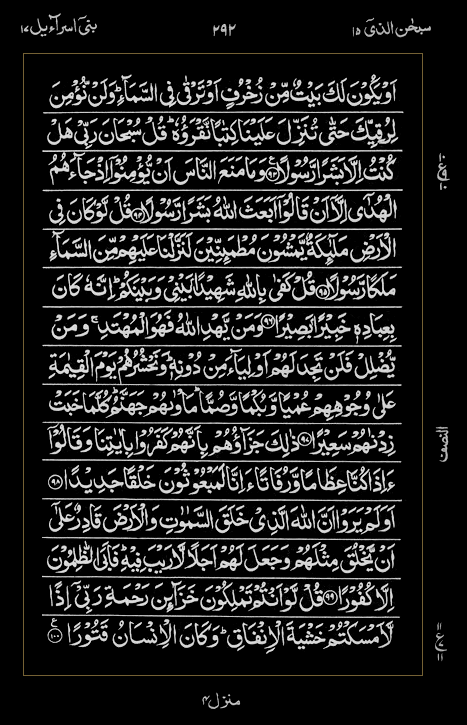 سبحٰن الذیٓ ۱۵
۲۹۲
بنیٓ اسرآءیل ۱۷
اَوْ یَكُوْنَ لَكَ بَیْتٌ مِّنْ زُخْرُفٍ اَوْ تَرْقٰى فِی السَّمَآءِؕ وَ لَنْ نُّؤْمِنَ
لِرُقِیِّكَ حَتّٰى تُنَزِّلَ عَلَیْنَا كِتٰبًا نَّقْرَؤُهٗؕ قُلْ سُبْحَانَ رَبِّیْ هَلْ
كُنْتُ اِلَّا بَشَرًا رَّسُوْلًا۠ ۹۳ وَ مَا مَنَعَ النَّاسَ اَنْ یُّؤْمِنُوْۤا اِذْ جَآءَهُمُ
الْهُدٰۤى اِلَّاۤ اَنْ قَالُوْۤا اَبَعَثَ اللّٰهُ بَشَرًا رَّسُوْلًا ۹۴ قُلْ لَّوْ كَانَ فِی
الْاَرْضِ مَلٰٓىِٕكَةٌ یَّمْشُوْنَ مُطْمَىِٕنِّیْنَ لَنَزَّلْنَا عَلَیْهِمْ مِّنَ السَّمَآءِ
مَلَكًا رَّسُوْلًا ۹۵ قُلْ كَفٰى بِاللّٰهِ شَهِیْدًۢا بَیْنِیْ وَ بَیْنَكُمْؕ اِنَّهٗ كَانَ
بِعِبَادِهٖ خَبِیْرًۢا بَصِیْرًا ۹۶ وَ مَنْ یَّهْدِ اللّٰهُ فَهُوَ الْمُهْتَدِۚ وَ مَنْ
یُّضْلِلْ فَلَنْ تَجِدَ لَهُمْ اَوْلِیَآءَ مِنْ دُوْنِهٖؕ وَ نَحْشُرُهُمْ یَوْمَ الْقِیٰمَةِ
عَلٰى وُجُوْهِهِمْ عُمْیًا وَّ بُكْمًا وَّ صُمًّاؕ مَاْوٰىهُمْ جَهَنَّمُؕ كُلَّمَا خَبَتْ
زِدْنٰهُمْ سَعِیْرًا ۹۷ ذٰلِكَ جَزَآؤُهُمْ بِاَنَّهُمْ كَفَرُوْا بِاٰیٰتِنَا وَ قَالُوْۤا
ءَاِذَا كُنَّا عِظَامًا وَّ رُفَاتًا ءَاِنَّا لَمَبْعُوْثُوْنَ خَلْقًا جَدِیْدًا ۹۸
اَوَ لَمْ یَرَوْا اَنَّ اللّٰهَ الَّذِیْ خَلَقَ السَّمٰوٰتِ وَ الْاَرْضَ قَادِرٌ عَلٰۤى
اَنْ یَّخْلُقَ مِثْلَهُمْ وَ جَعَلَ لَهُمْ اَجَلًا لَّا رَیْبَ فِیْهِؕ فَاَبَى الظّٰلِمُوْنَ
اِلَّا كُفُوْرًا ۹۹ قُلْ لَّوْ اَنْتُمْ تَمْلِكُوْنَ خَزَآىِٕنَ رَحْمَةِ رَبِّیْۤ اِذًا
لَّاَمْسَكْتُمْ خَشْیَةَ الْاِنْفَاقِؕ وَ كَانَ الْاِنْسَانُ قَتُوْرًا۠ ۱۰۰
النصف
منزل ۴